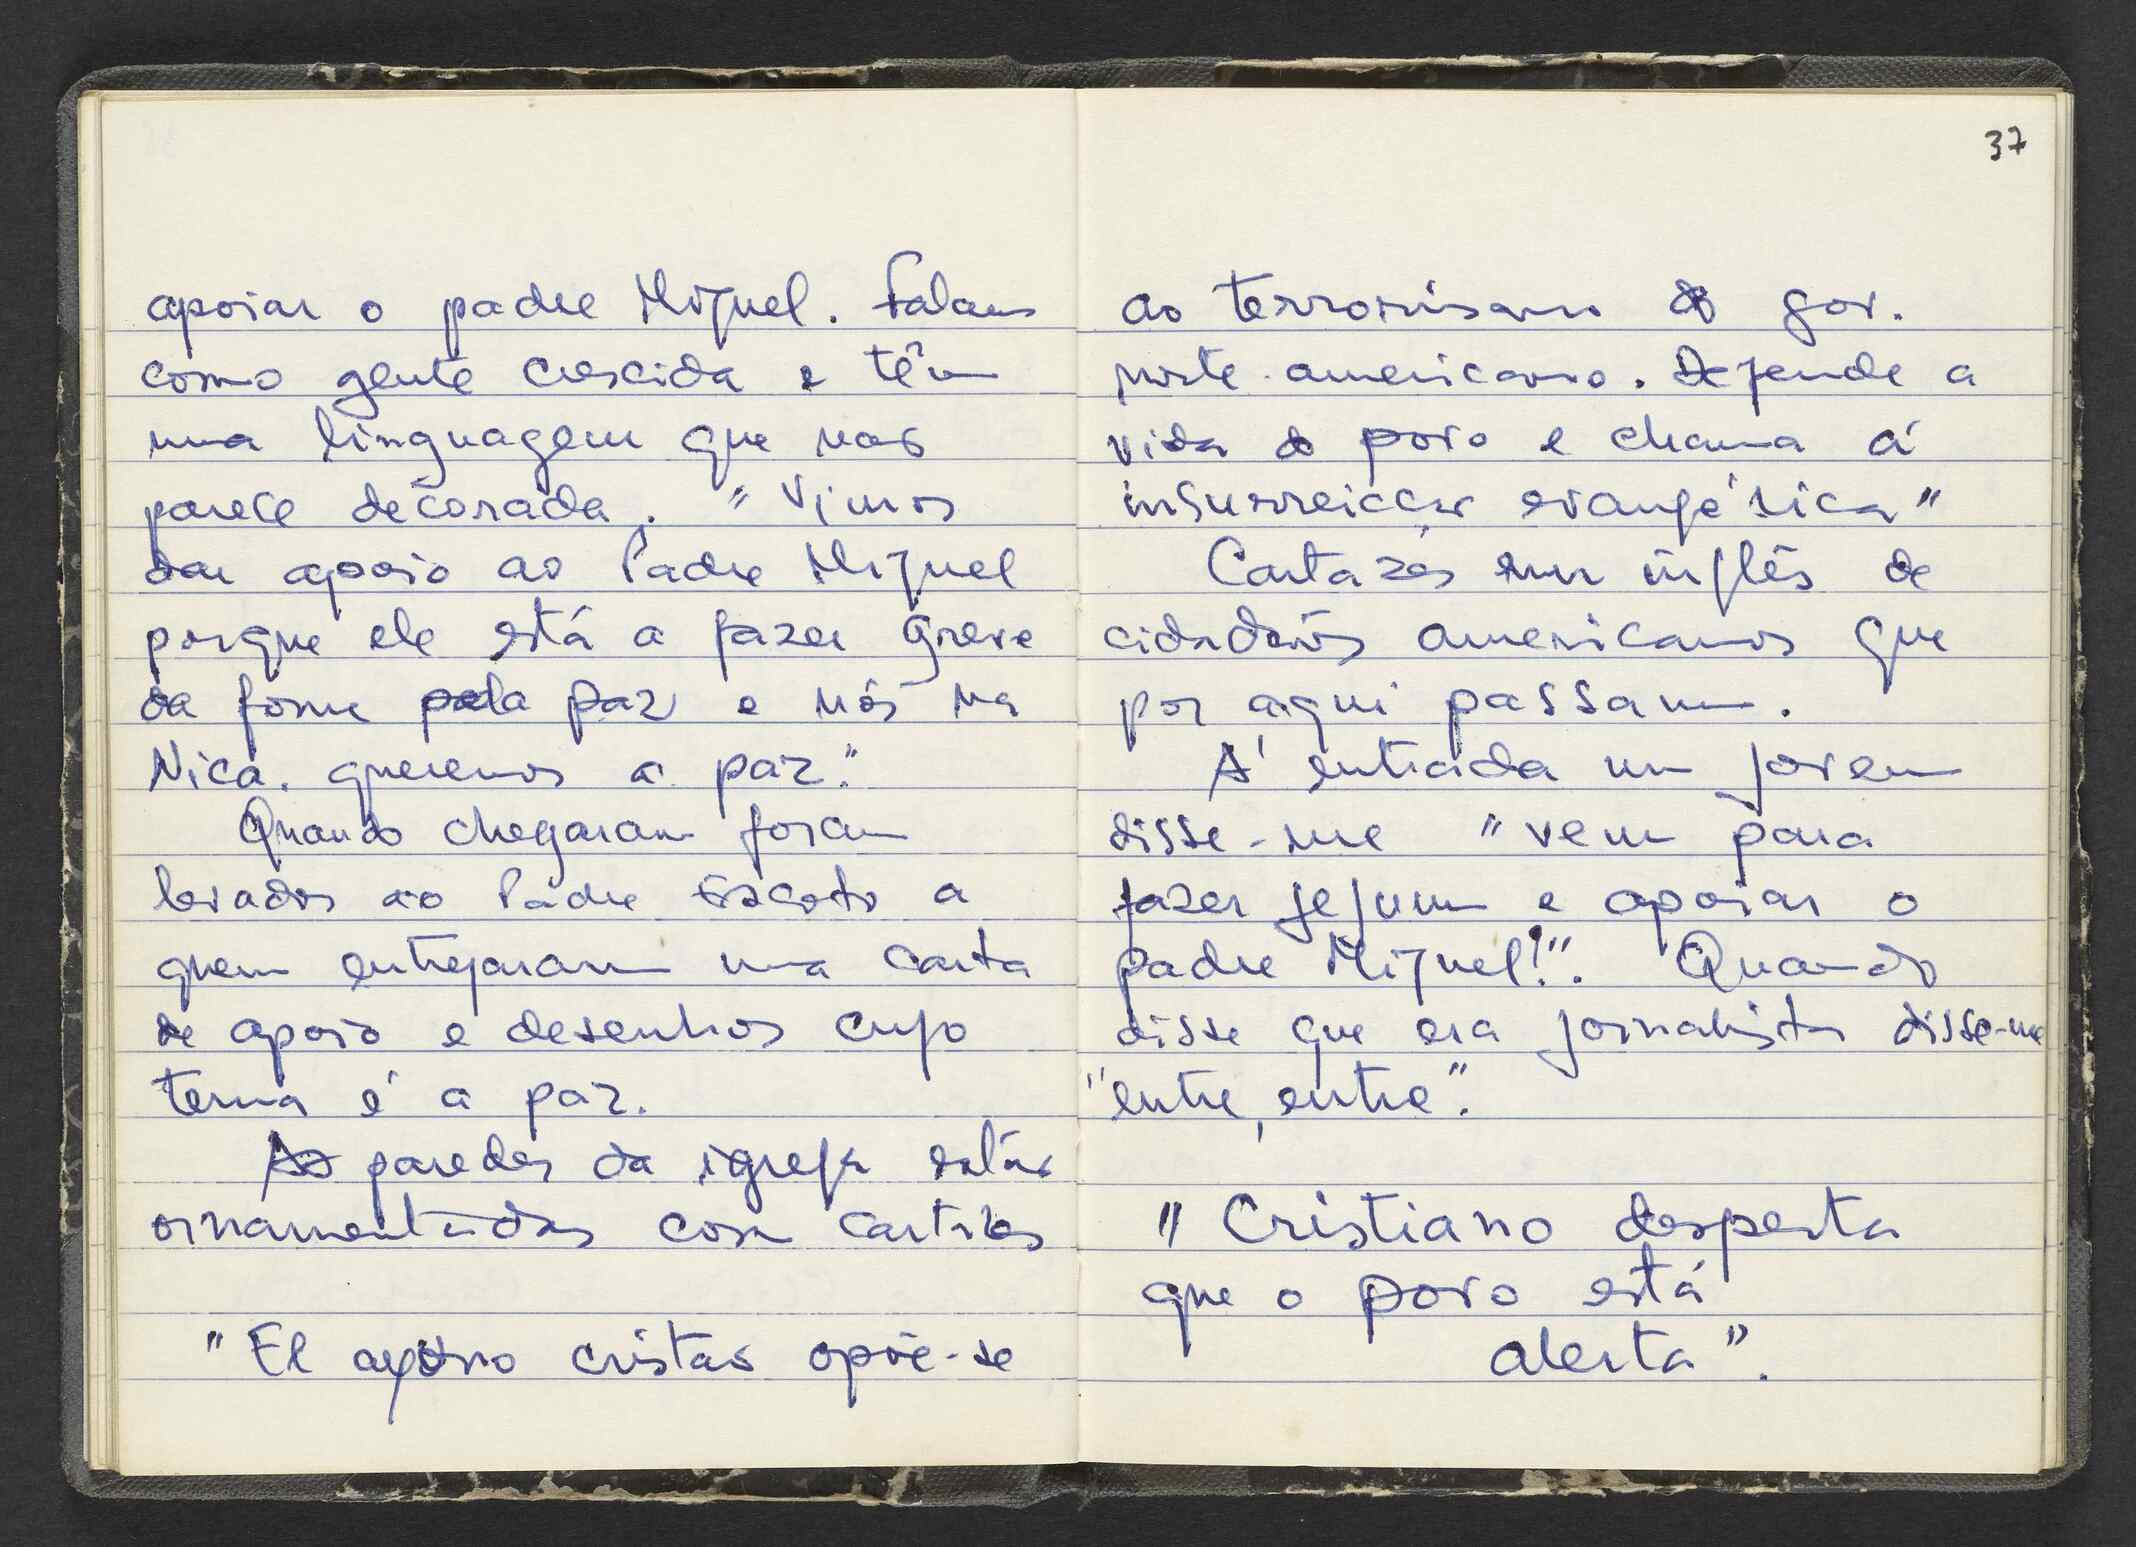 apoiar o padre Miguel. Falam
como gente crescida e têm
uma linguagem que nos
parece decorada. "Vimos
dar apoio ao Padre Miguel
porque ele está a fazer greve
da fome pela paz e nós na
Nica. queremos a paz."
Quando chegaram foram
levados ao Padre Escoto a
quem entregaram uma carta
de apoio e desenhos cujo
tema é a paz.
As paredes da igreja estão
ornamentadas com cartazes
"El ayuno cristão opõe-se
37
ao terrorismo do gov.
norte-americano. Defende a
vida do povo e chama á
insurreicção evangélica"
Cartazes em inglês de
cidadãos americanos que
por aqui passam.
Á entrada um jovem
disse-me "vem para
fazer jejum e apoiar o
padre Miguel!". Quando
disse que era jornalista disse-me
"entre, entre".
"Cristiano desperta
que o povo está
alerta".